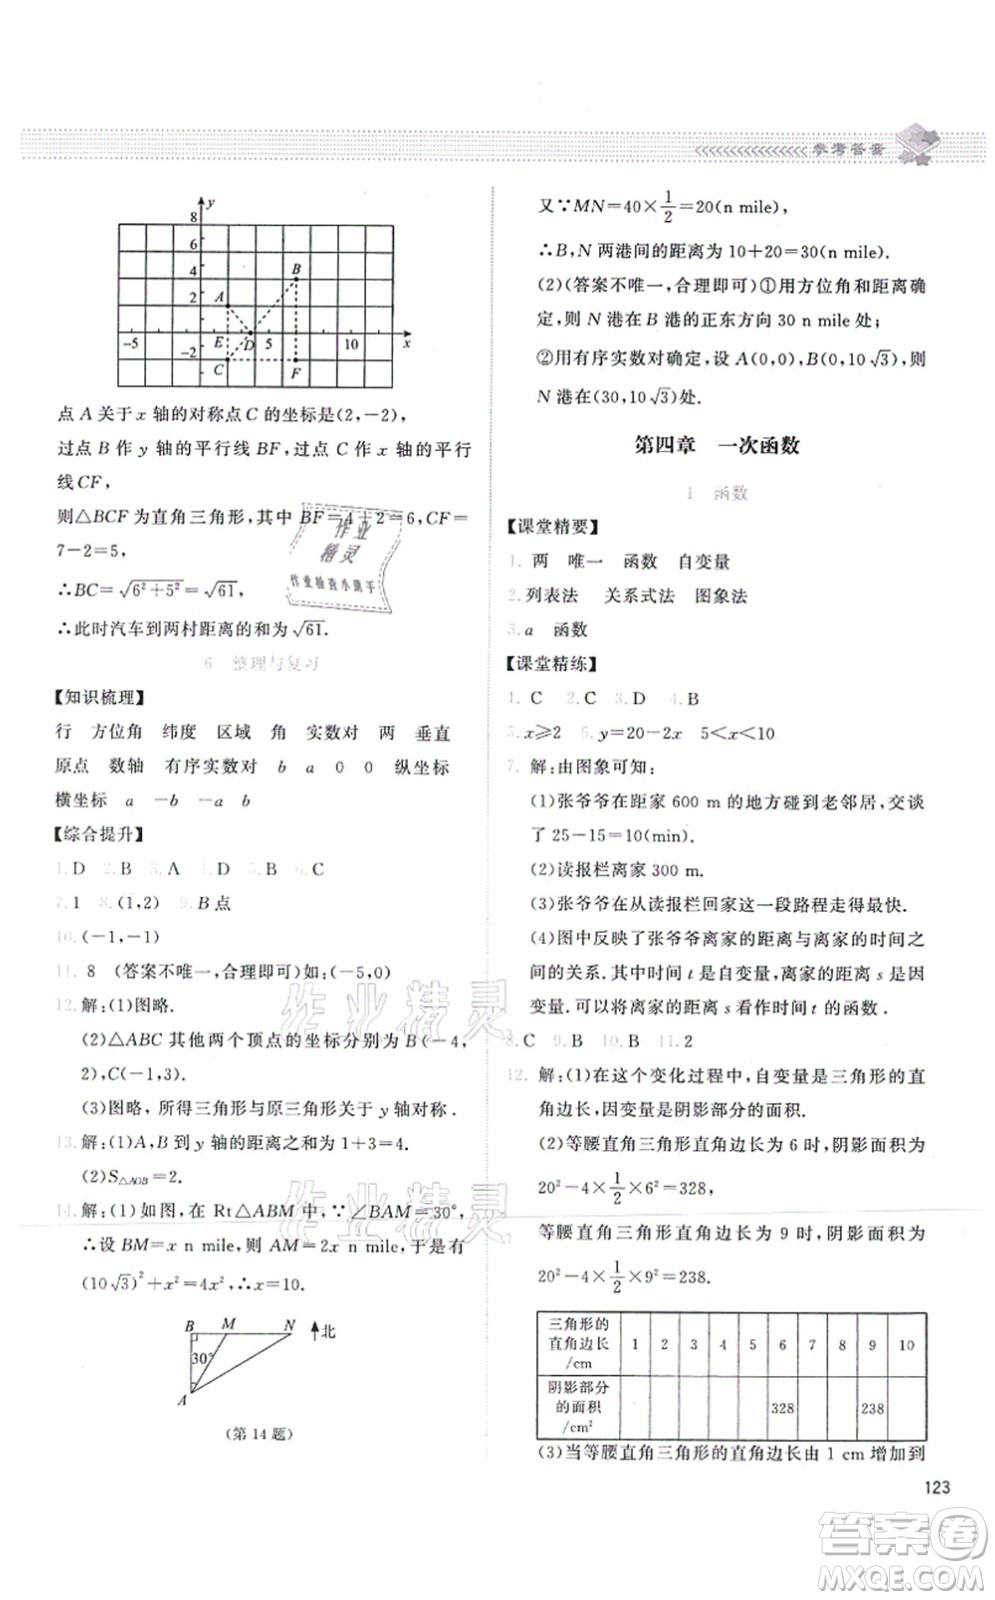 参考答案
y
8
6
4
2
-2
-5
5
10
x
A
B
E
D
C
F
点 A 关于 x 轴的对称点 C 的坐标是(2,-2),
过点 B 作 y 轴的平行线 BF,过点 C 作 x 轴的平行
线 CF,
则△BCF 为直角三角形,其中 BF=4+2=6,CF=
7-2=5,
∴BC=√(6²+5²)=√61,
∴此时汽车到两村距离的和为√61.
6 整理与复习
【知识梳理】
行 方位角 纬度 区域 角 实数对 两 垂直
原点 数轴 有序实数对 b a 0 0 纵坐标
横坐标 a -b -a b
【综合提升】
1.D 2.B 3.A 4.D 5.B 6.C
7.1 8.(1,2) 9.B 点
10.(-1,-1)
11. 8 (答案不唯一,合理即可)如:(-5,0)
12.解:(1)图略.
(2)△ABC 其他两个顶点的坐标分别为 B(-4,
2),C(-1,3).
(3)图略,所得三角形与原三角形关于 y 轴对称.
13.解:(1)A,B 到 y 轴的距离之和为 1+3=4.
(2)S△AOB=2.
14.解:(1)如图,在 Rt△ABM 中,∵∠BAM=30°,
∴设 BM=x n mile,则 AM=2x n mile,于是有
(10√3)²+x²=4x²,∴x=10.
B M N 北
30°
A
(第 14 题)
又∵MN=40×1/2=20(n mile),
∴B,N 两港间的距离为 10+20=30(n mile).
(2)(答案不唯一,合理即可)①用方位角和距离确
定,则 N 港在 B 港的正东方向 30 n mile 处;
②用有序实数对确定,设 A(0,0),B(0,10√3),则
N 港在(30,10√3)处.
第四章 一次函数
1 函数
【课堂精要】
1.两 唯一 函数 自变量
2.列表法 关系式法 图象法
3.a 函数
【课堂精练】
1. C 2.C 3.C 4.B
5.x≥2 6.y=20-2x 5<x<10
7.解:由图象可知:
(1)张爷爷在距家 600 m 的地方碰到老邻居,交谈
了 25-15=10(min).
(2)读报栏离家 300 m.
(3)张爷爷从读报栏回家这一段路程走得最快.
(4)图中反映了张爷爷离家的距离与离家的时间之
间的关系.其中时间 t 是自变量,离家的距离 s 是因
变量.可以将离家的距离 s 看作时间 t 的函数.
8.C 9.B 10.B 11.2
12.解:(1)在这个变化过程中,自变量是三角形的直
角边长,因变量是阴影部分的面积.
(2)等腰直角三角形直角边长为 6 时,阴影面积为
20²-4×1/2×6²=328,
等腰直角三角形直角边长为 9 时,阴影面积为
20²-4×1/2×9²=238.
三角形的直角边长/cm 1 2 3 4 5 6 7 8 9 10
阴影部分的面积/cm² 328 238
(3)当等腰直角三角形的直角边长由 1 cm 增加到
123
作业精灵
作业检查小助手
作业精灵
作业精灵
答案圈
MXQE.COM